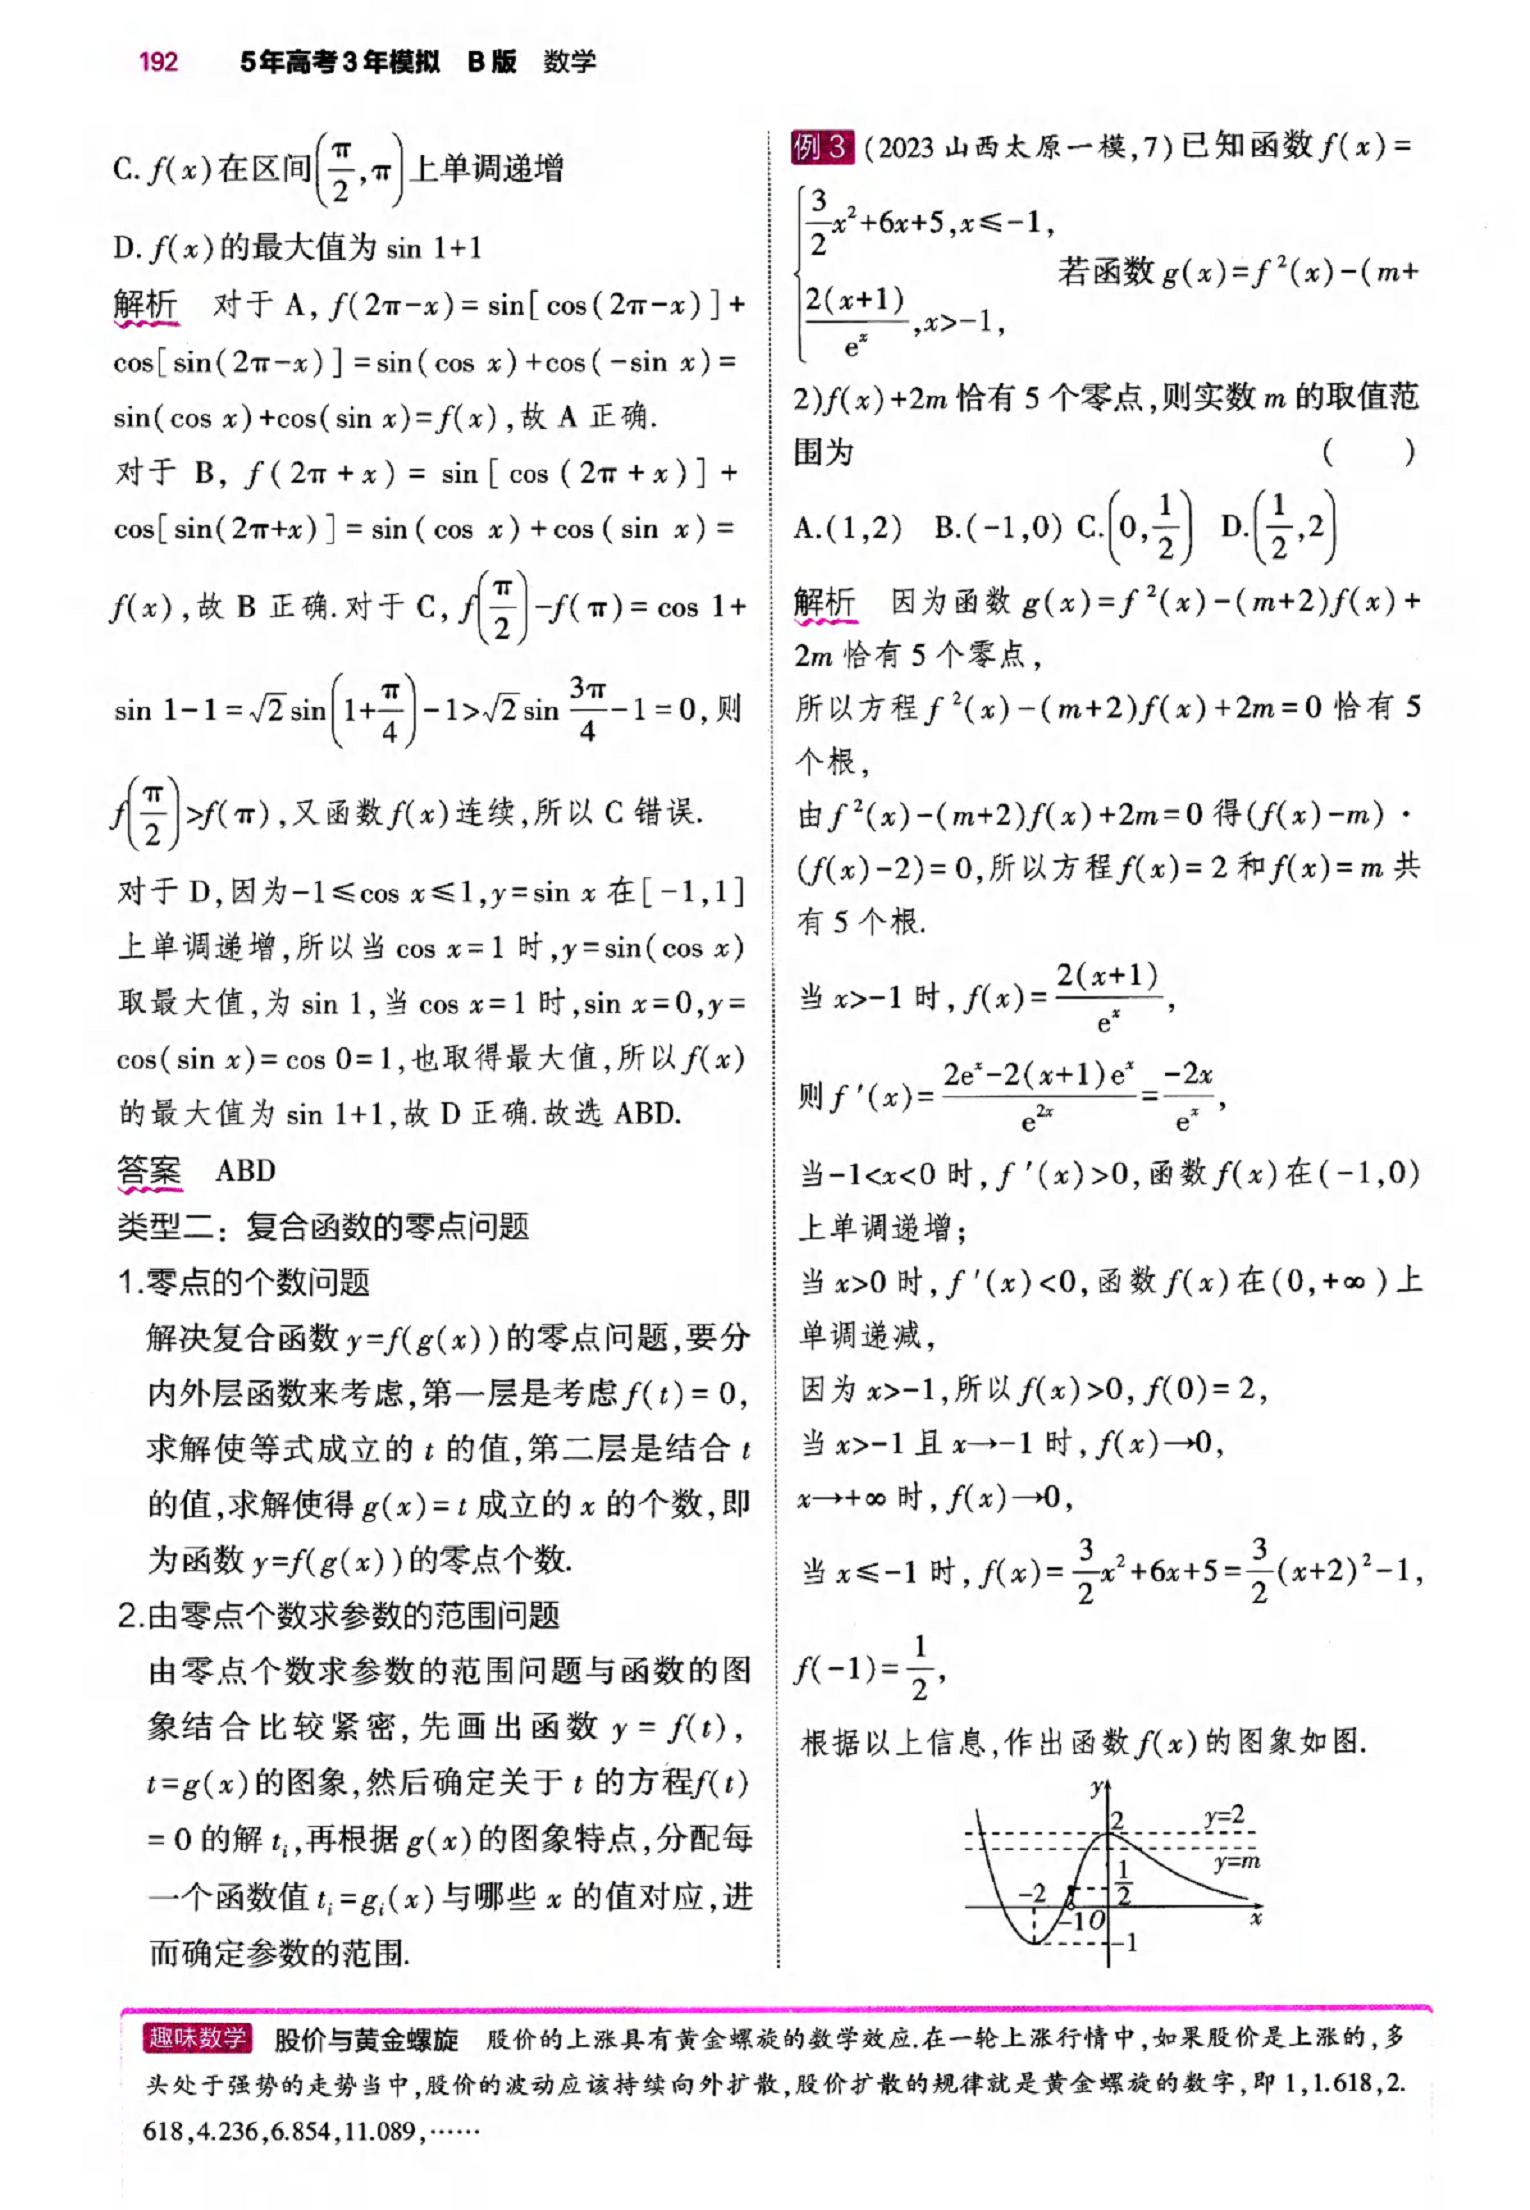 192 5年高考3年模拟 B版 数学
C. f(x)在区间(π/2,π)上单调递增
D. f(x)的最大值为 sin 1+1
解析 对于 A, f(2π-x)= sin[ cos(2π-x)]+
cos[ sin(2π-x)] = sin( cos x)+cos(-sin x)=
sin(cos x)+cos(sin x)=f(x),故 A 正确.
对于 B, f(2π+x) = sin[ cos(2π+x)]+
cos[ sin(2π+x)] = sin( cos x)+cos( sin x)=
f(x),故 B 正确.对于 C, f(π/2)-f(π)= cos 1+
sin 1-1=√2 sin(1+π/4)-1>√2 sin 3π/4-1=0,则
f(π/2)>f(π),又函数f(x)连续,所以 C 错误.
对于 D,因为-1≤cos x≤1,y=sin x 在[-1,1]
上单调递增,所以当 cos x=1 时,y=sin(cos x)
取最大值,为 sin 1,当 cos x=1 时,sin x=0,y=
cos(sin x)= cos 0=1,也取得最大值,所以f(x)
的最大值为 sin 1+1,故 D 正确.故选 ABD.
答案 ABD
类型二：复合函数的零点问题
1.零点的个数问题
解决复合函数 y=f(g(x))的零点问题,要分
内外层函数来考虑,第一层是考虑f(t)=0,
求解使等式成立的 t 的值,第二层是结合 t
的值,求解使得 g(x)=t 成立的 x 的个数,即
为函数 y=f(g(x))的零点个数.
2.由零点个数求参数的范围问题
由零点个数求参数的范围问题与函数的图
象结合比较紧密,先画出函数 y = f(t),
t=g(x)的图象,然后确定关于 t 的方程f(t)
=0 的解 tᵢ,再根据 g(x)的图象特点,分配每
一个函数值 tᵢ=gᵢ(x)与哪些 x 的值对应,进
而确定参数的范围.
例3 (2023 山西太原一模,7)已知函数 f(x)=
{ 3/2 x²+6x+5,x≤-1,
2(x+1)/eˣ,x>-1,
若函数 g(x)=f²(x)-(m+
2)f(x)+2m 恰有 5 个零点,则实数 m 的取值范
围为 ( )
A.(1,2) B.(-1,0) C.(0,1/2) D.(1/2,2)
解析 因为函数 g(x)=f²(x)-(m+2)f(x)+
2m 恰有 5 个零点,
所以方程 f²(x)-(m+2)f(x)+2m=0 恰有 5
个根,
由 f²(x)-(m+2)f(x)+2m=0 得(f(x)-m)·
(f(x)-2)=0,所以方程f(x)=2 和f(x)=m 共
有 5 个根.
当 x>-1 时, f(x)=2(x+1)/eˣ,
则 f'(x)=(2eˣ-2(x+1)eˣ)/e²ˣ=-2x/eˣ,
当-1<x<0 时, f'(x)>0,函数 f(x)在(-1,0)
上单调递增;
当 x>0 时, f'(x)<0,函数 f(x)在(0,+∞)上
单调递减,
因为 x>-1,所以f(x)>0, f(0)=2,
当 x>-1 且 x→-1 时, f(x)→0,
x→+∞ 时, f(x)→0,
当 x≤-1 时, f(x)=3/2 x²+6x+5=3/2(x+2)²-1,
f(-1)=1/2,
根据以上信息,作出函数f(x)的图象如图.
y
2
y=2
y=m
1/2
-2
-1
O
x
-1
趣味数学 股价与黄金螺旋 股价的上涨具有黄金螺旋的数学效应.在一轮上涨行情中,如果股价是上涨的,多
头处于强势的走势当中,股价的波动应该持续向外扩散,股价扩散的规律就是黄金螺旋的数字,即 1,1.618,2.
618,4.236,6.854,11.089,……